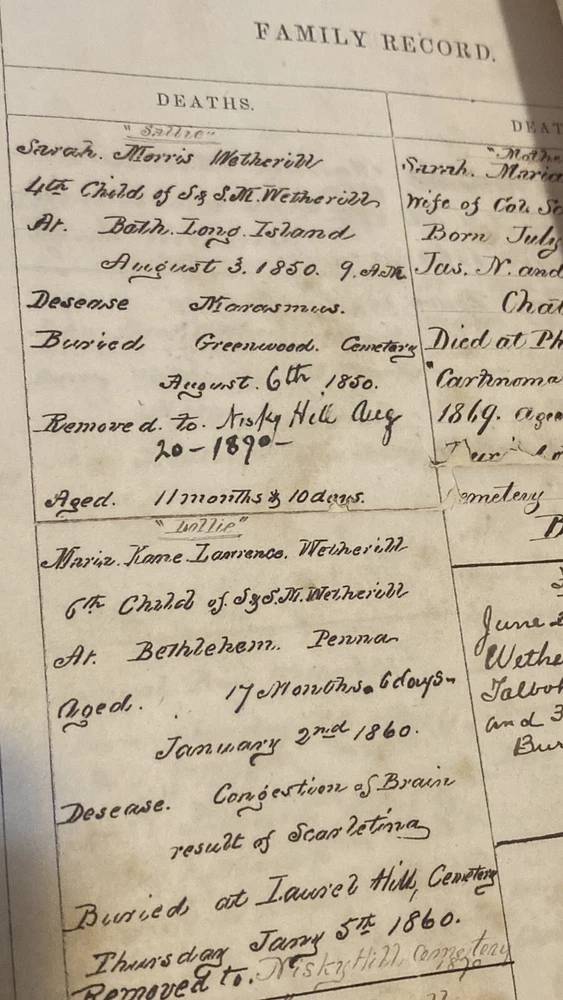 FAMILY RECORD.
DEATHS.
"Sallie"
Sarah. Morris Wetherill
4th Child of S & S.M. Wetherill
At. Bath. Long. Island
August 3. 1850. 9. A.M.
Desease Marasmus.
Buried Greenwood. Cemetery
August. 6th 1850.
Removed. to. Nisky Hill Aug
20 - 1890 -
Aged. 11 months & 10 days.
"Lillie"
Maria. Kane. Lawrence. Wetherill
6th Child of. S & S.M. Wetherill
At. Bethlehem. Penna
Aged. 17 Months. 6 days -
January 2nd 1860.
Desease. Congestion of Brain
result of Scarletina
Buried at Laurel Hill, Cemetery
Thursday Jany 5th 1860.
Removed to. Nisky Hill Cemetery
Sarah. Maria
Wife of Col. 
Born July
Jas. N. and
Died at
1869. aged
Cemetery
June
and 3